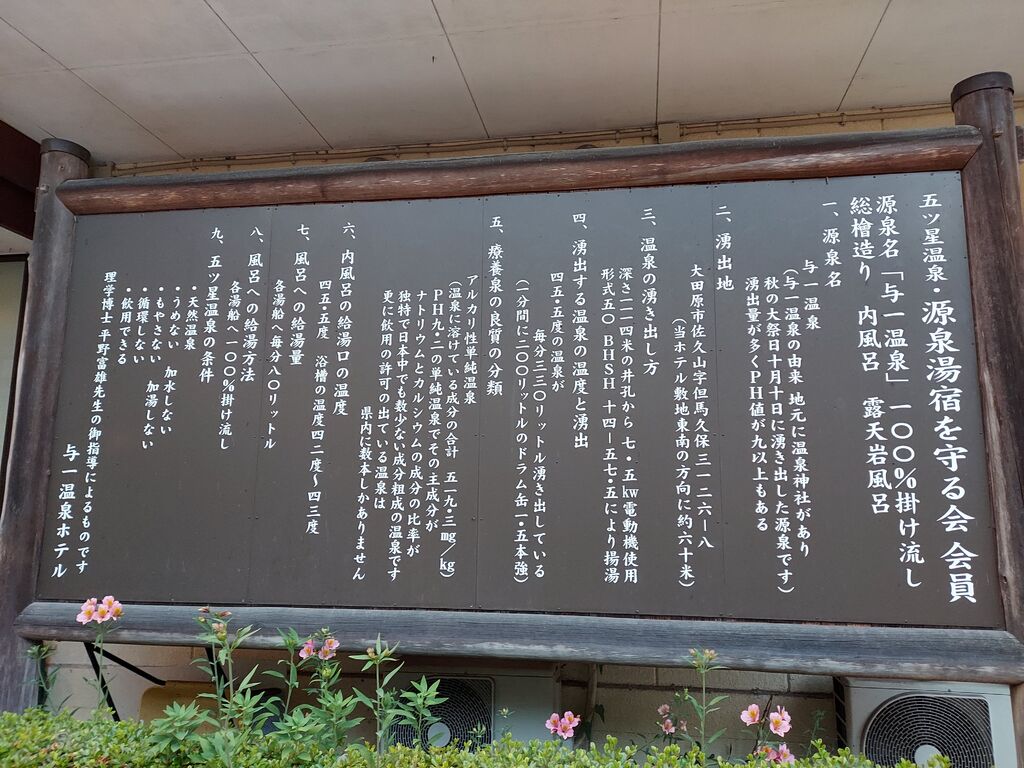 五ツ星温泉・源泉湯宿を守る会 会員
源泉名「与一温泉」一〇〇％掛け流し
総檜造り 内風呂 露天岩風呂
一、源泉名
与一温泉
(与一温泉の由来 地元に温泉神社があり
秋の大祭日十月十日に湧き出した源泉です)
湧出量が多くPH値が九以上もある
二、湧出地
大田原市佐久山字但馬久保三一二六ー八
(当ホテル敷地東南の方向に約六十米)
三、温泉の湧き出し方
深さ二二四米の井孔から七・五kw電動機使用
形式五〇BHSH 十四ー五七・五により揚湯
四、湧出する温泉の温度と湧出
毎分三三〇リットル湧き出している
四五・五度の温泉が
(一分間に二〇〇リットルのドラム缶一・五本強)
五、療養泉の良質の分類
アルカリ性単純温泉
(温泉に溶けている成分の合計 五一九・三mg/kg)
PH九・二の単純温泉でその主成分が
ナトリウムとカルシウムの成分の比率が
独特で日本中でも数少ない成分粗成の温泉です
更に飲用の許可の出ている温泉は
県内に数本しかありません
六、内風呂の給湯口の温度
四五・五度 浴槽の温度四二度〜四三度
七、風呂への給湯量
各湯船へ毎分八〇リットル
八、風呂への給湯方法
各湯船へ一〇〇％掛け流し
九、五ツ星温泉の条件
・天然温泉
・うめない 加水しない
・もやさない 加温しない
・循環しない
・飲用できる
理学博士 平野富雄先生の御指導によるものです
与一温泉ホテル